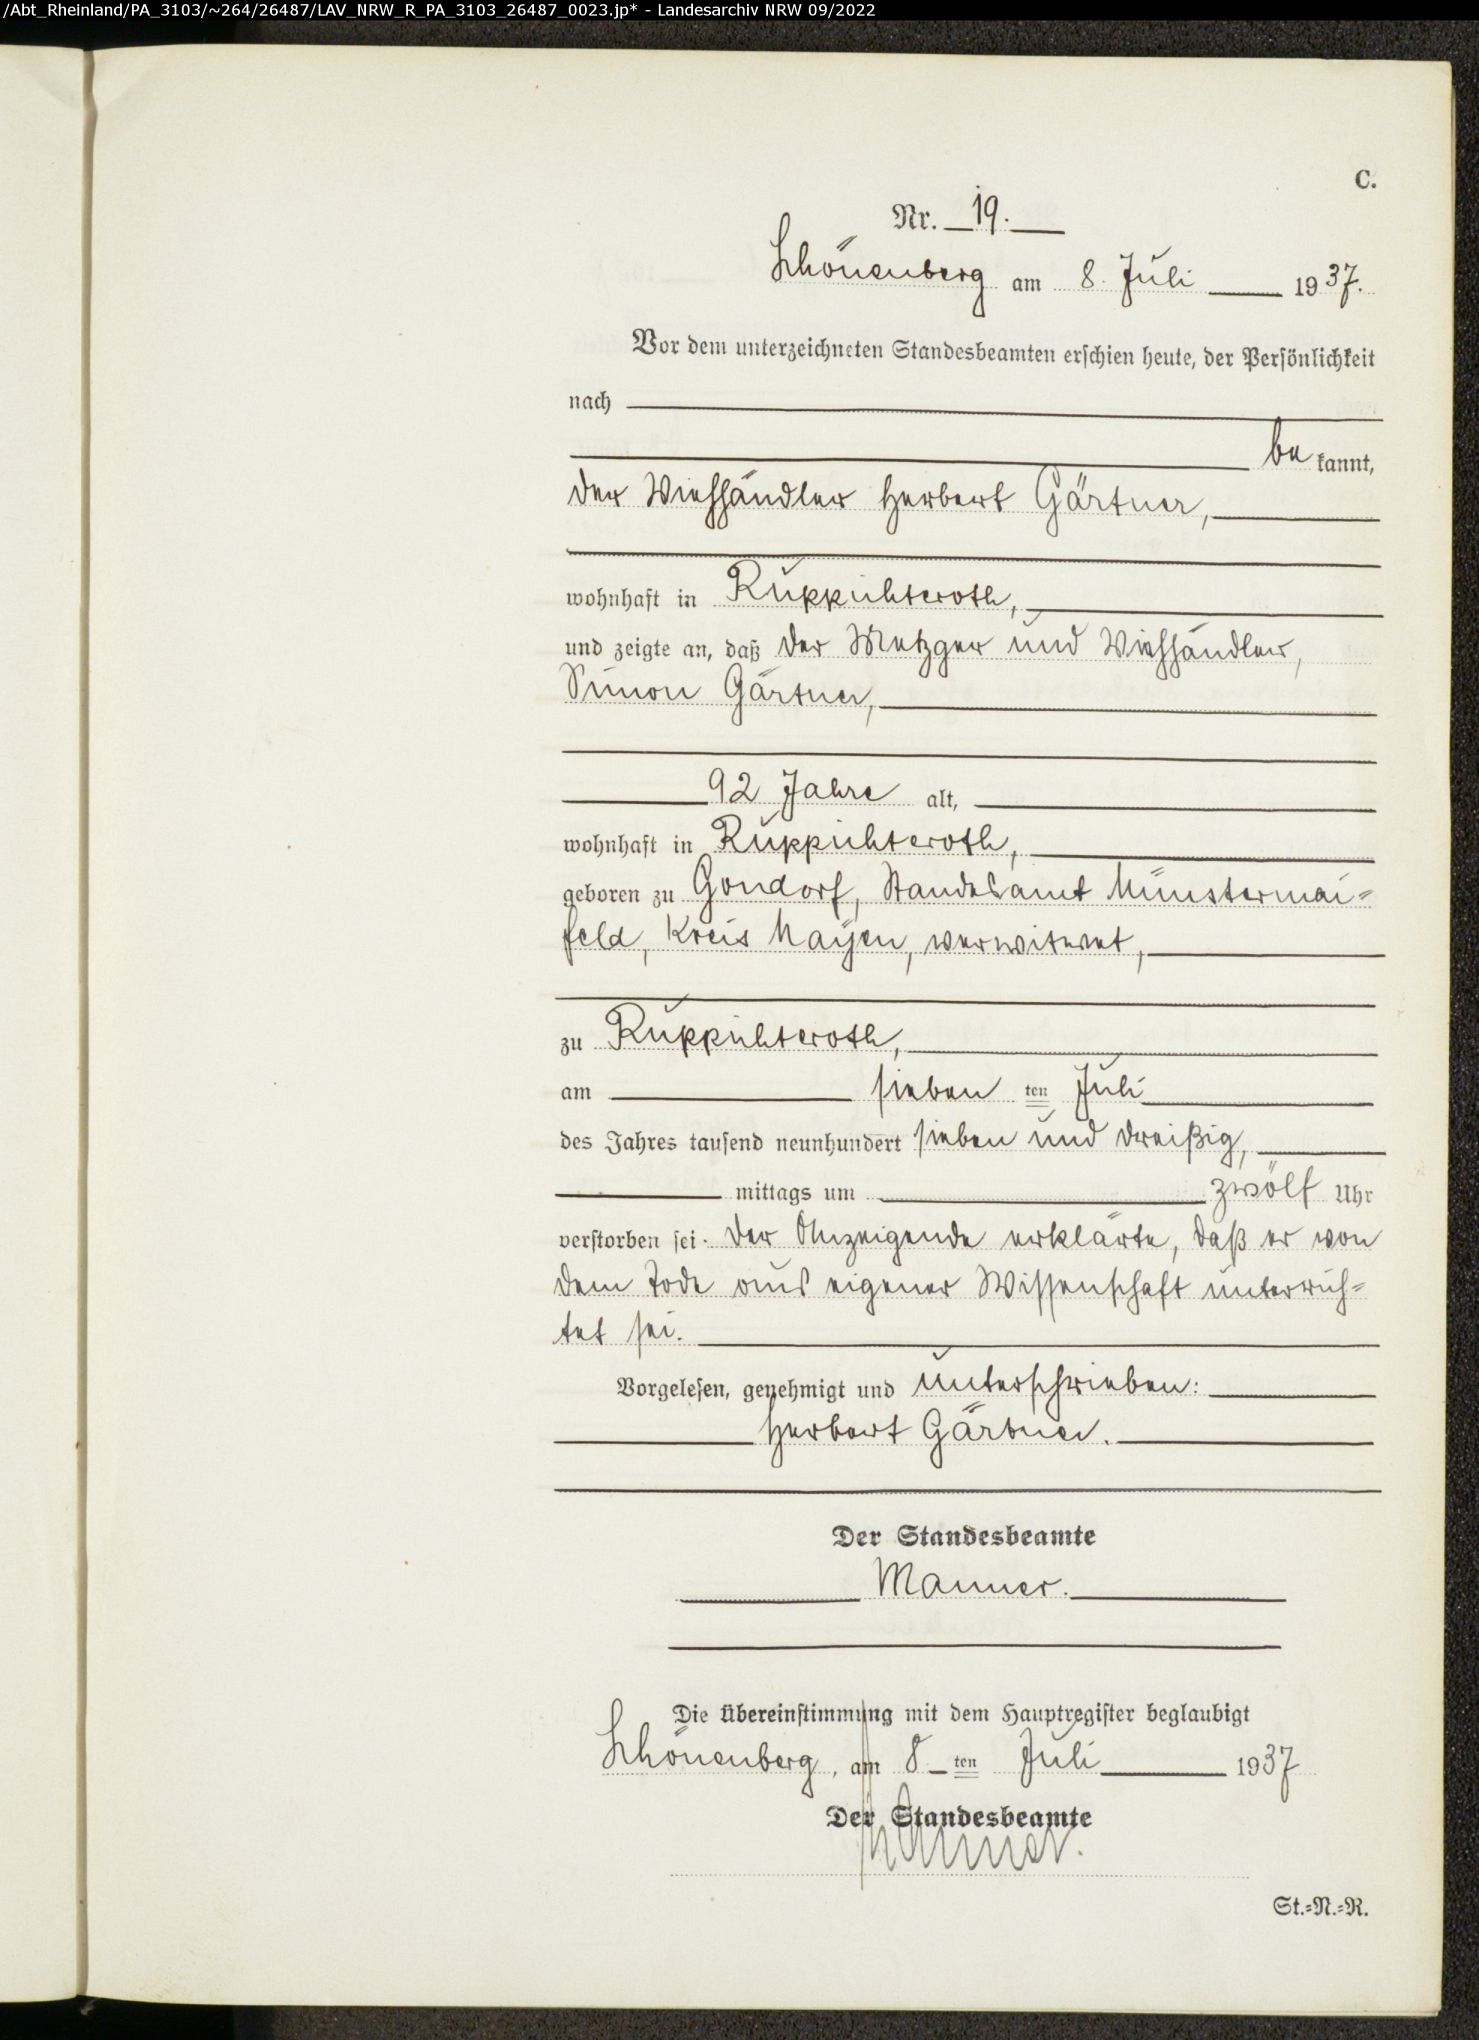 /Abt_Rheinland/PA_3103/~264/26487/LAV_NRW_R_PA_3103_26487_0023.jp* - Landesarchiv NRW 09/2022
C.
Nr. 19.
Schönenberg am 8. Juli 1937.
Vor dem unterzeichneten Standesbeamten erschien heute, der Persönlichkeit
nach
be kannt,
der Viehhändler Herbert Gärtner,
wohnhaft in Ruppichteroth,
und zeigte an, daß der Metzger und Viehhändler,
Simon Gärtner,
92 Jahre alt,
wohnhaft in Ruppichteroth,
geboren zu Gondorf, Standesamt Münstermai=
feld, Kreis Mayen, verwitwet,
zu Ruppichteroth,
am sieben ten Juli
des Jahres tausend neunhundert sieben und dreißig,
mittags um zwölf Uhr
verstorben sei. Der Anzeigende erklärte, daß er von
dem Tode aus eigener Wissenschaft unterrich=
tet sei.
Vorgelesen, genehmigt und unterschrieben:
Herbert Gärtner.
Der Standesbeamte
Manner.
Die Übereinstimmung mit dem Hauptregister beglaubigt
Schönenberg, am 8 ten Juli 1937
Der Standesbeamte
Manner.
St.=N.=R.